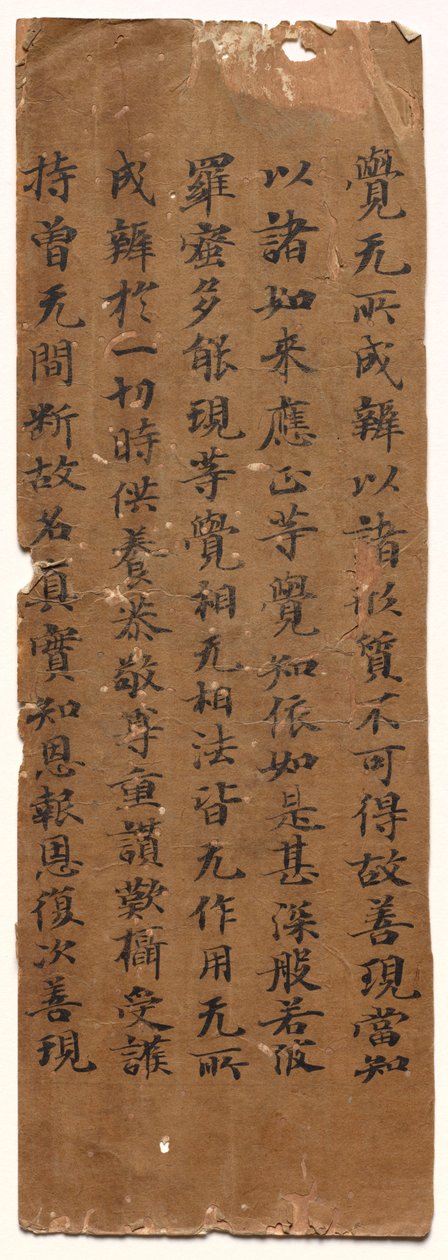 覺无所成辦以諸形質不可得故善現當知
以諸如来應正等覺知依如是甚深般若波
羅蜜多能現等覺相无相法皆无作用无所
成辦於一切時供養恭敬尊重讃歎攝受護
持曾无間断故名真實知恩報恩復次善現